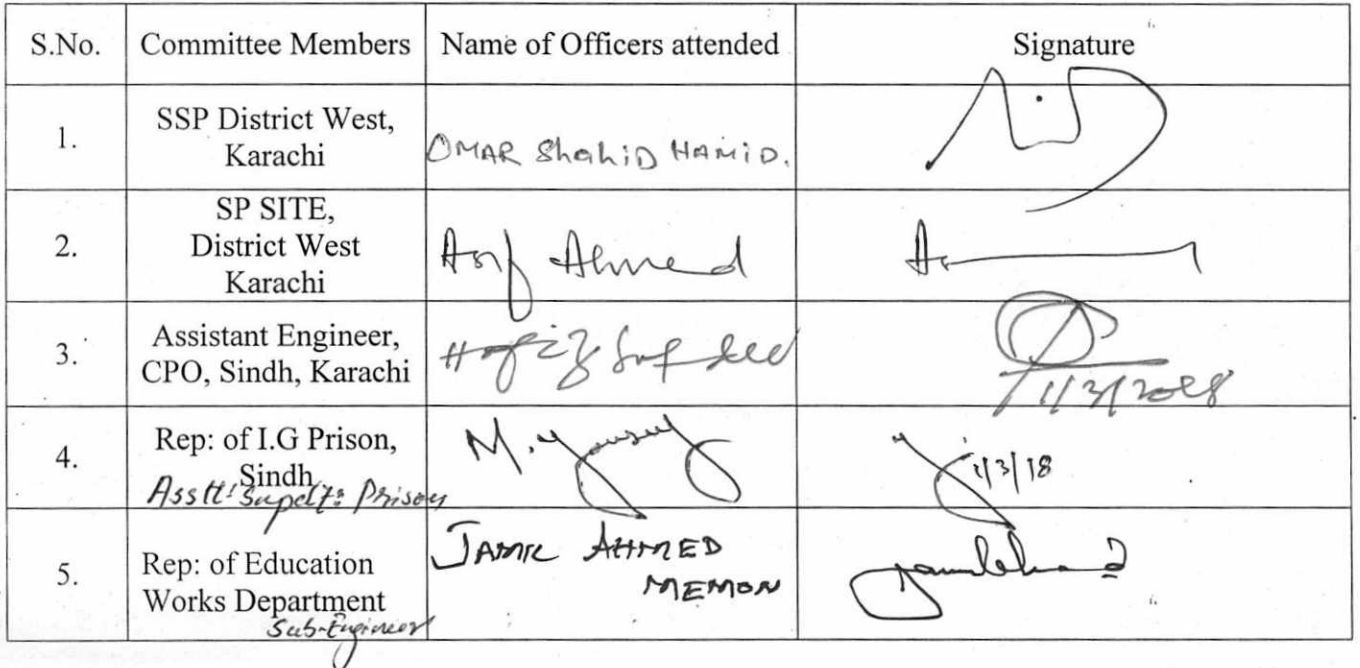 S.No. Committee Members Name of Officers attended Signature
1. SSP District West, Karachi OMAR ShahiD HAMiD.
2. SP SITE, District West Karachi Asif Ahmed
3. Assistant Engineer, CPO, Sindh, Karachi Hafiz
4. Rep: of I.G Prison, Sindh M. Yousuf 1/3/18
Asstt: Supdt: Prison
5. Rep: of Education Works Department JAMIL AHMED MEMON
Sub-Engineer